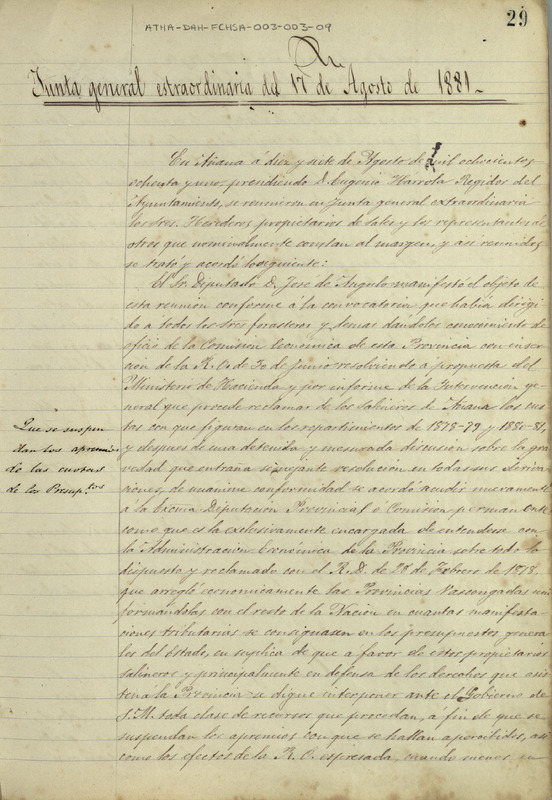 29
ATHA-DAH-FCHSA-003-003-09
Junta general estraordinaria del 17 de Agosto de 1881.-
En Añana á diez y siete de Agosto de mil ochocientos
ochenta y uno, presidiendo D. Eugenio Harrola Regidor del
Ayuntamiento, se reunieron en Junta general extraordinaria
los Sres. Herederos propietarios de Sales y los representantes de
otros que nominalmente constan al margen, y asi reunidos
se trató y acordó lo siguiente:
El Sr. Diputado D. Jose de Angulo manifestó el objeto de
esta reunion conforme á la convocatoria que habia dirigi
do a todos los Sres forasteros y demas dandoles conocimiento de
oficio de la Comision Economica de esta Provincia con inser
cion de la R. O. de 30 de Junio resolviendo a propuesta del
Ministerio de Hacienda y por informe de la Intervencion ge
neral que procede reclamar de los salineros de Añana las cuo
tas con que figuran en los repartimientos de 1878-79 y 1880-81,
y despues de una detenida y mesurada discusion sobre la gra
vedad que entraña semejante resolucion en todas sus deriva
ciones, de unanime conformidad se acordó acudir nuevamente
á la Excma Diputacion Provincial o Comision permanente
como que es la exclusivamente encargada de entenderse con
la Administracion Economica de la Provincia sobre todo lo
dispuesto y reclamado con el R. D. de 28 de Febrero de 1878,
que arregló economicamente las Provincias Vascongadas uni
formandolas con el resto de la Nacion en cuantas manifesta
ciones tributarias se consignasen en los presupuestos genera
les del Estado, en suplica de que a favor de estos propietarios
salineros y principalmente en defensa de los derechos que asis
ten á la Provincia se digne interponer ante el Gobierno de
S. M. toda clase de recursos que procedan, á fin de que se
suspendan los apremios con que se hallan apercibidos, asi
como los efectos de la R. O. espresada, cuando menos, en
Que se suspen
dan los apremios
de las cuotas
de los Presup.tos